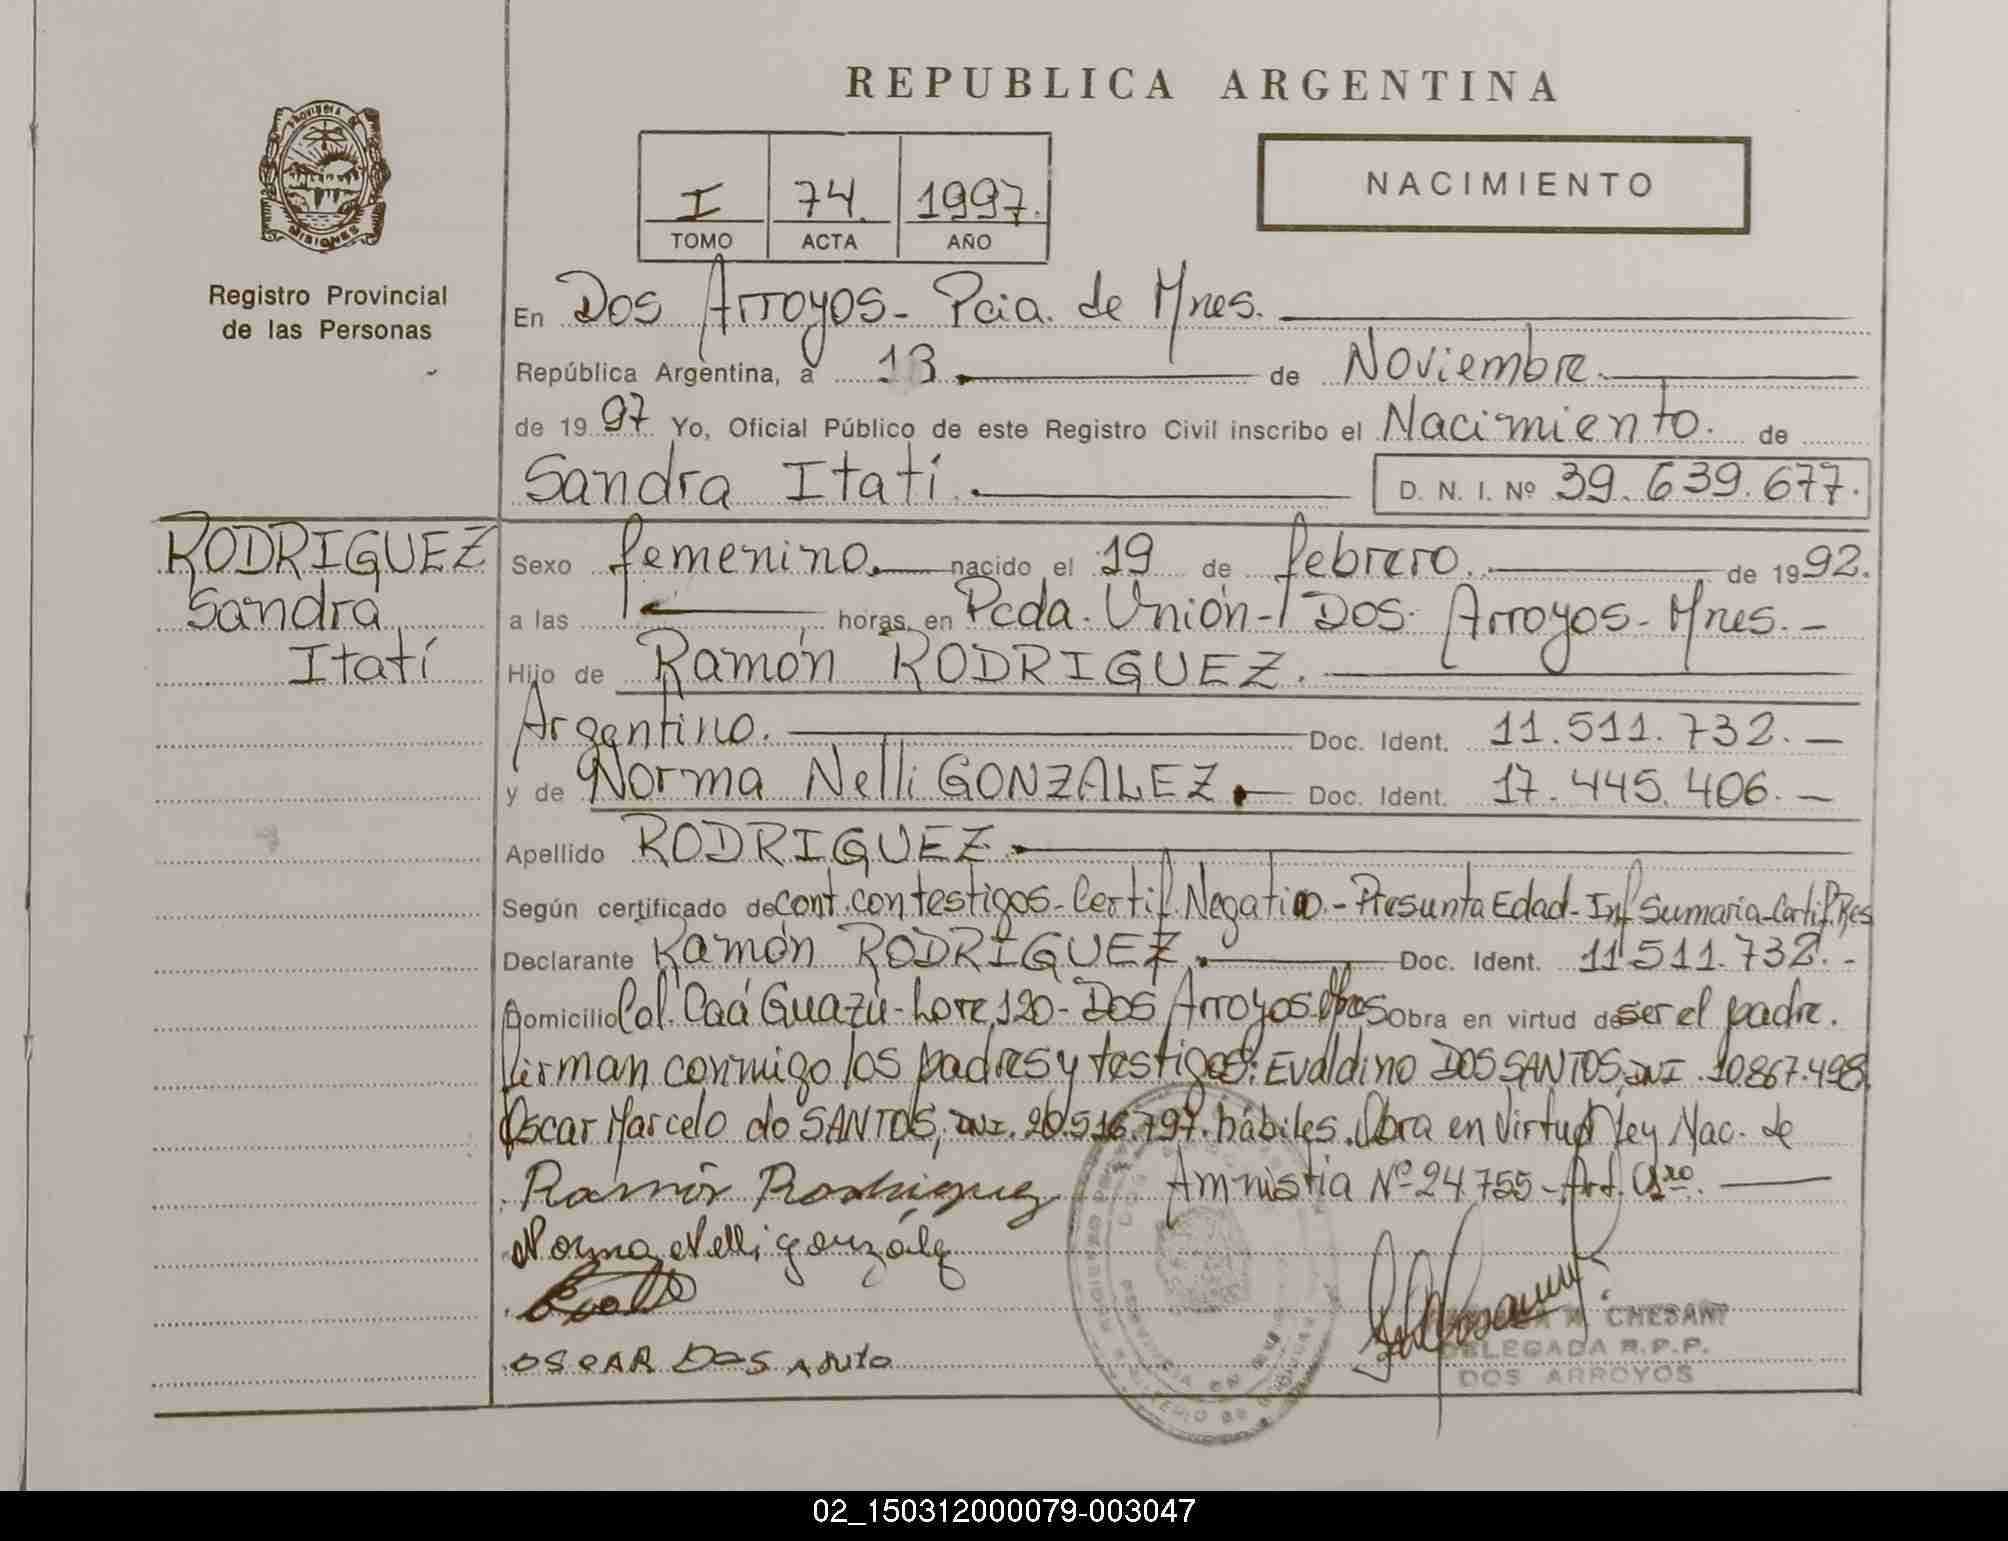 REPUBLICA ARGENTINA
PROVINCIA DE
MISIONES
Registro Provincial
de las Personas
I 74. 1997.
TOMO ACTA AÑO
NACIMIENTO
En Dos Arroyos - Pcia. de Mnes.
República Argentina, a 13 de Noviembre.
de 19 97 Yo, Oficial Público de este Registro Civil inscribo el Nacimiento. de
Sandra Itatí. D. N. I. Nº 39.639.677.
RODRIGUEZ
Sandra
Itatí
Sexo femenino. nacido el 19 de febrero. de 1992.
a las horas, en Pcda. Unión - Dos Arroyos - Mnes. -
Hijo de Ramón RODRIGUEZ.
Argentino. Doc. Ident. 11.511.732. -
y de Norma Nelli GONZALEZ. Doc. Ident. 17.445.406. -
Apellido RODRIGUEZ.
Según certificado de cont. con testigos - Certif. Negativo. - Presunta Edad - Inf. Sumaria - Certif. Res
Declarante Ramón RODRIGUEZ. Doc. Ident. 11.511.732. -
Domicilio Col. Caá Guazú - Lote 120 - Dos Arroyos. Mnes Obra en virtud de ser el padre.
Firman conmigo los padres y testigos: Evaldino DOS SANTOS, DNI. 10.867.498
Oscar Marcelo do SANTOS, DNI. 20.516.797. hábiles. Obra en Virtud Ley Nac. de
Amnistia Nº 24.755 - Art. 1ero.
Ramón Rodriguez
Norma Nelli gonzález
OSCAR DOS
CHESANI
DELEGADA R.P.P.
DOS ARROYOS
02_150312000079-003047